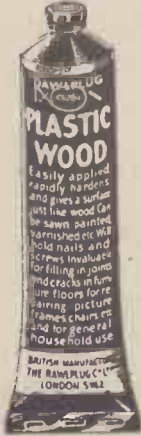 RAWLPLUG
PLASTIC
WOOD
Easily applied
rapidly hardens
and gives a surface
just like wood Can
be sawn painted
varnished etc Will
hold nails and
screws Invaluable
for filling in joints
and cracks in furni
ture floors for re
pairing picture
frames chairs etc
and for general
household use
BRITISH MANUFACTURE
THE RAWLPLUG Co LTD
LONDON S.W.7